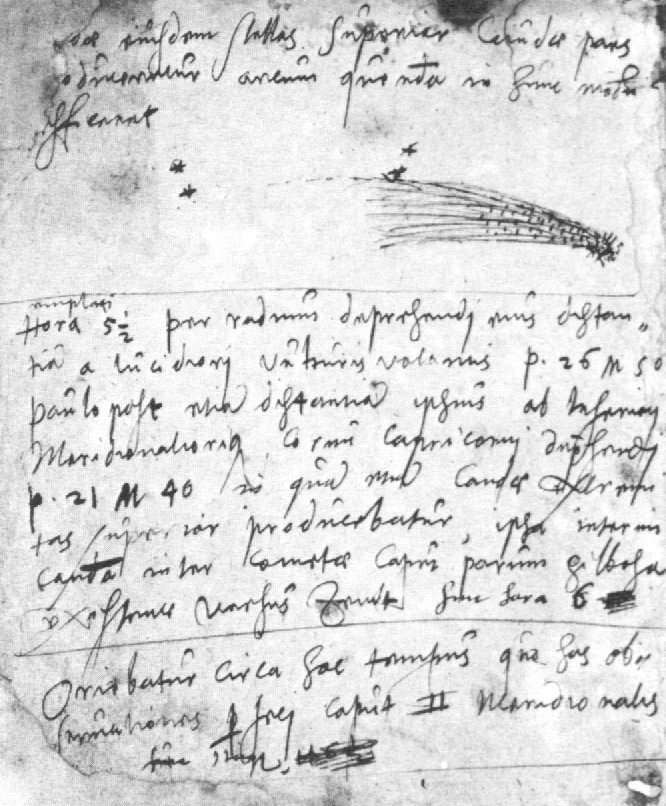 eiusdem stellas superior Caudae pars
producerentur arcum quendam in hunc modum
efficerent
Hora 5½ per radium deprehendi eius distan
tiā a lucidiori Vulturis volantis p. 26 M 50
paulo post etiā distantiā ipsius ad Inferiorē
Meridionaliorēq Cornu Capricorni dephendi
p. 21 M 40 in quā etiā Caudae extremi
tas superior producebatur, ipsa interim
cauda inter Cometae Caput parum gibbosa
existente versus Zenit hinc hora 6
Oriebatur circa hoc tempus quo has obser
vationes feci caput ♊ Meridionalis